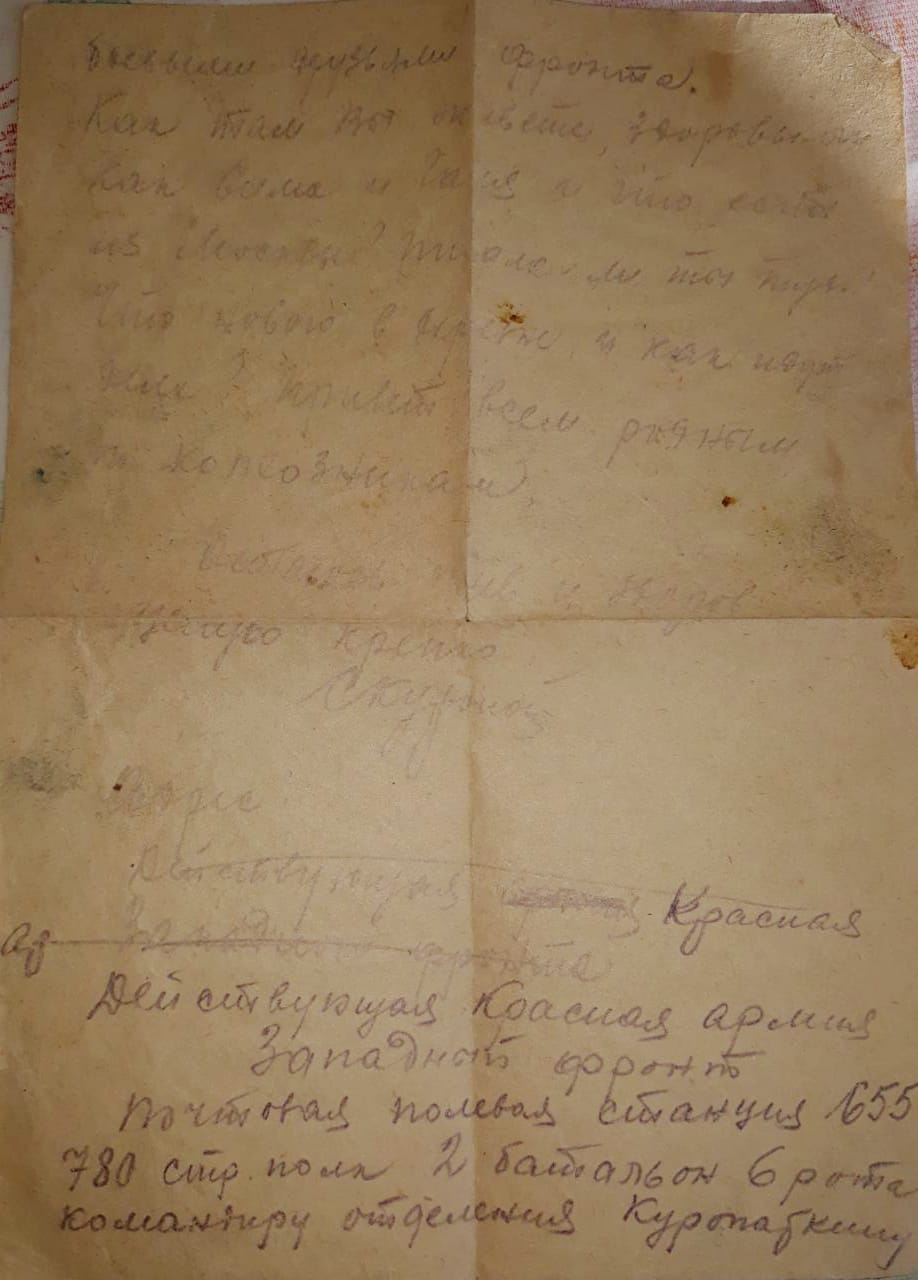 боевыми друзьями фронта.
Как там вы живете, здоровы ли
как Вима и и что есть
из Москвы? ли ты
Что нового в и как идут
дела? Привет всем родным
и колхозникам.
Остаюсь жив и здоров
Целую крепко
Адрес
Действующая Красная
Ар Западного фронта
Действующая Красная армия
Западный фронт
почтовая полевая станция 655
780 стр. полк 2 батальон 6 рота
командиру отделения Куропаткину